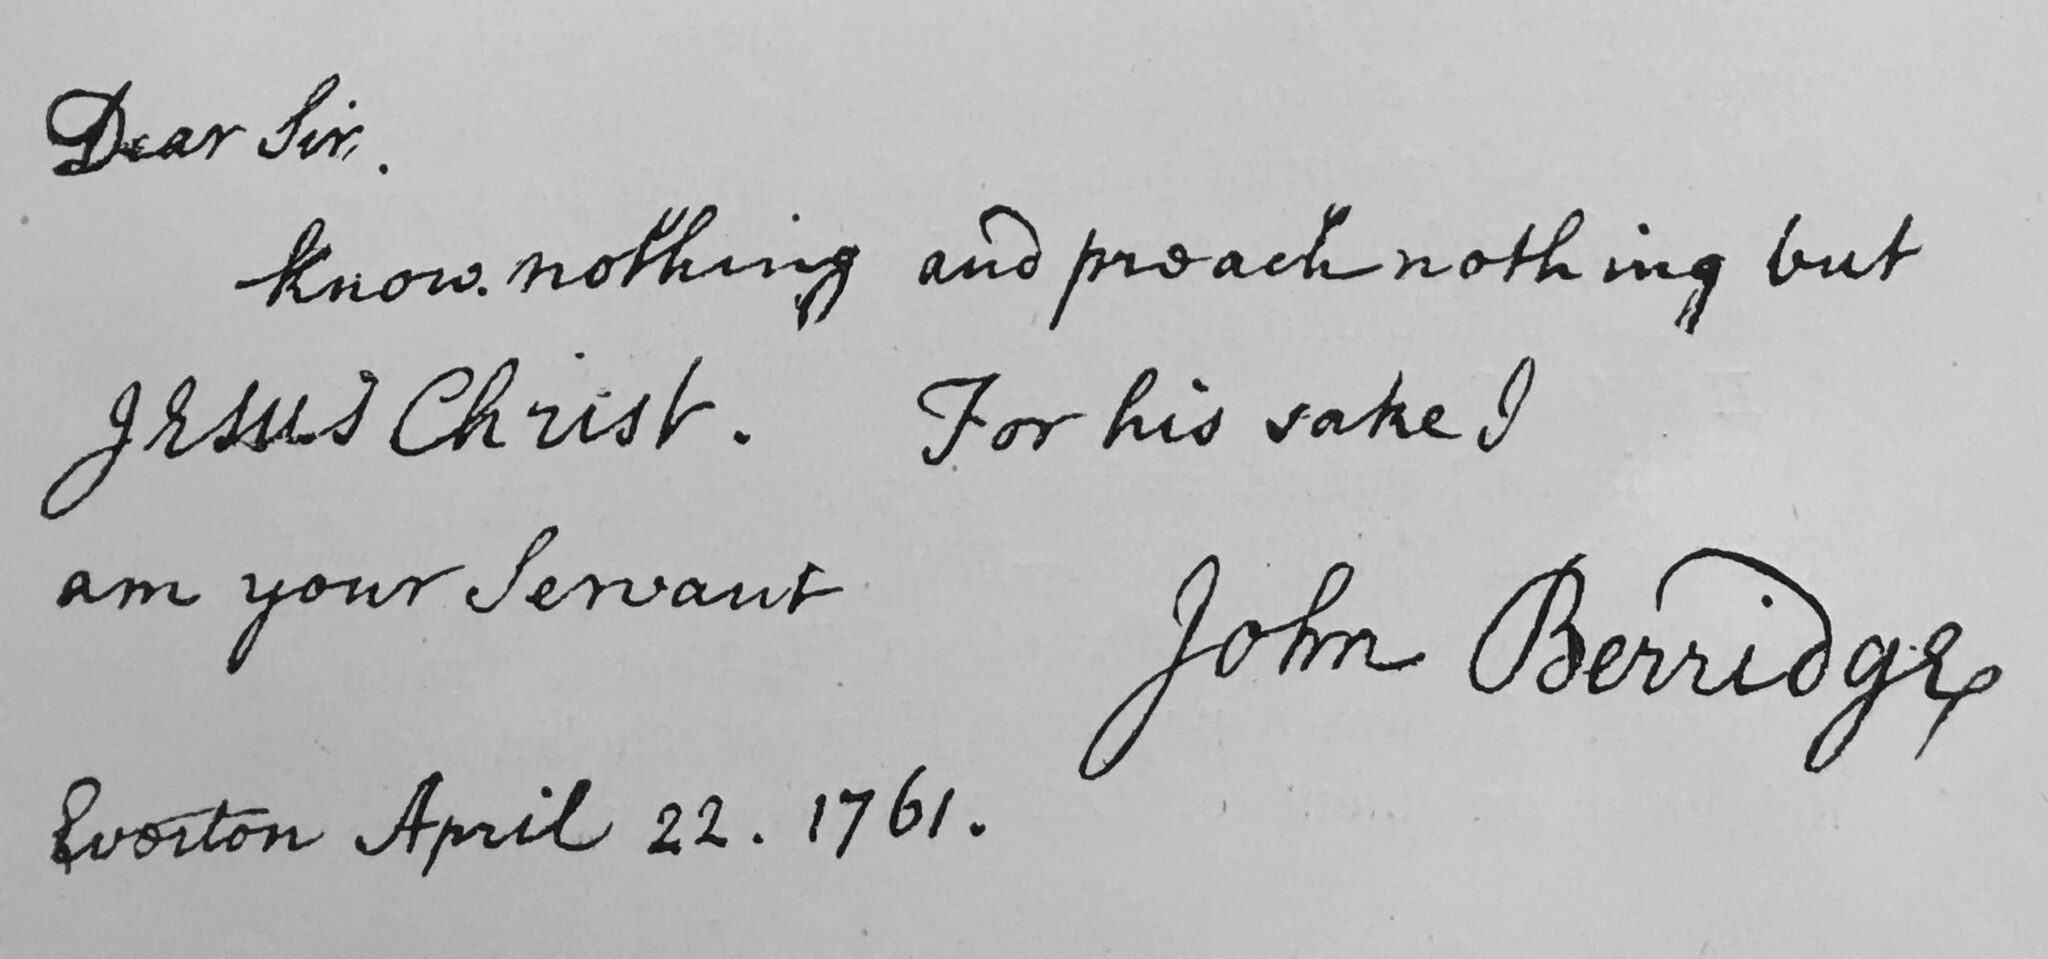 Dear Sir.
know nothing and preach nothing but
Jesus Christ. For his sake I
am your Servant
John Berridge
Everton April 22. 1761.